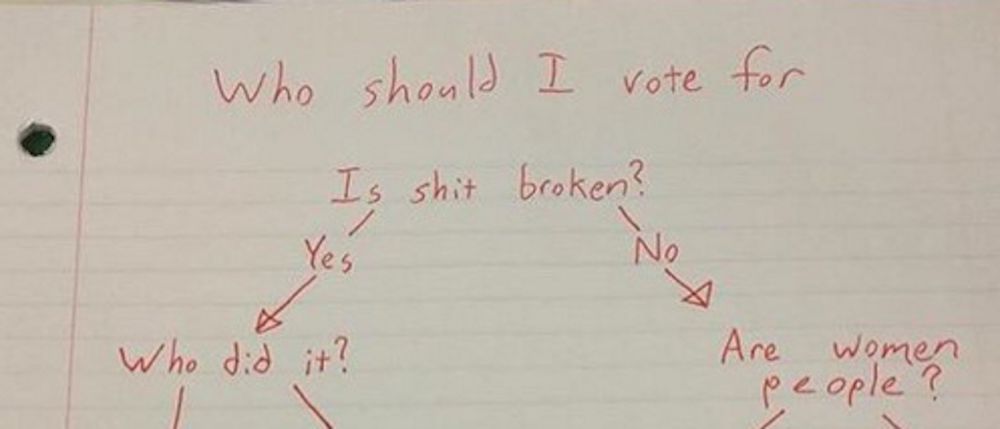 Who should I vote for
Is shit broken?
Yes
No
Who did it?
Are women
people?